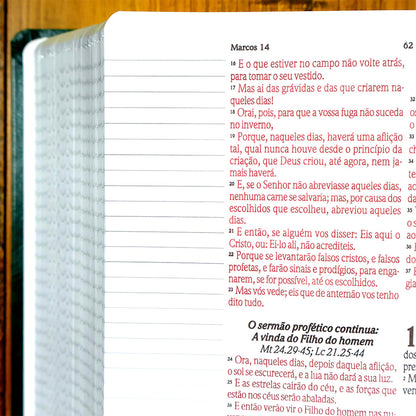 Marcos 14
62
16 E o que estiver no campo não volte atrás,
para tomar o seu vestido.
17 Mas ai das grávidas e das que criarem na-
queles dias!
18 Orai, pois, para que a vossa fuga não suceda
no inverno,
19 Porque, naqueles dias, haverá uma aflição
tal, qual nunca houve desde o princípio da
criação, que Deus criou, até agora, nem ja-
mais haverá.
20 E, se o Senhor não abreviasse aqueles dias,
nenhuma carne se salvaria; mas, por causa dos
escolhidos que escolheu, abreviou aqueles
dias.
21 E então, se alguém vos disser: Eis aqui o
Cristo, ou: Ei-lo ali, não acrediteis.
22 Porque se levantarão falsos cristos, e falsos
profetas, e farão sinais e prodígios, para enga-
narem, se for possível, até os escolhidos.
23 Mas vós vede; eis que de antemão vos tenho
dito tudo.
O sermão profético continua:
A vinda do Filho do homem
Mt 24.29-45; Lc 21.25-44
24 Ora, naqueles dias, depois daquela aflição,
o sol se escurecerá, e a lua não dará a sua luz.
25 E as estrelas cairão do céu, e as forças que
estão nos céus serão abaladas.
26 E então verão vir o Filho do homem nas nu-